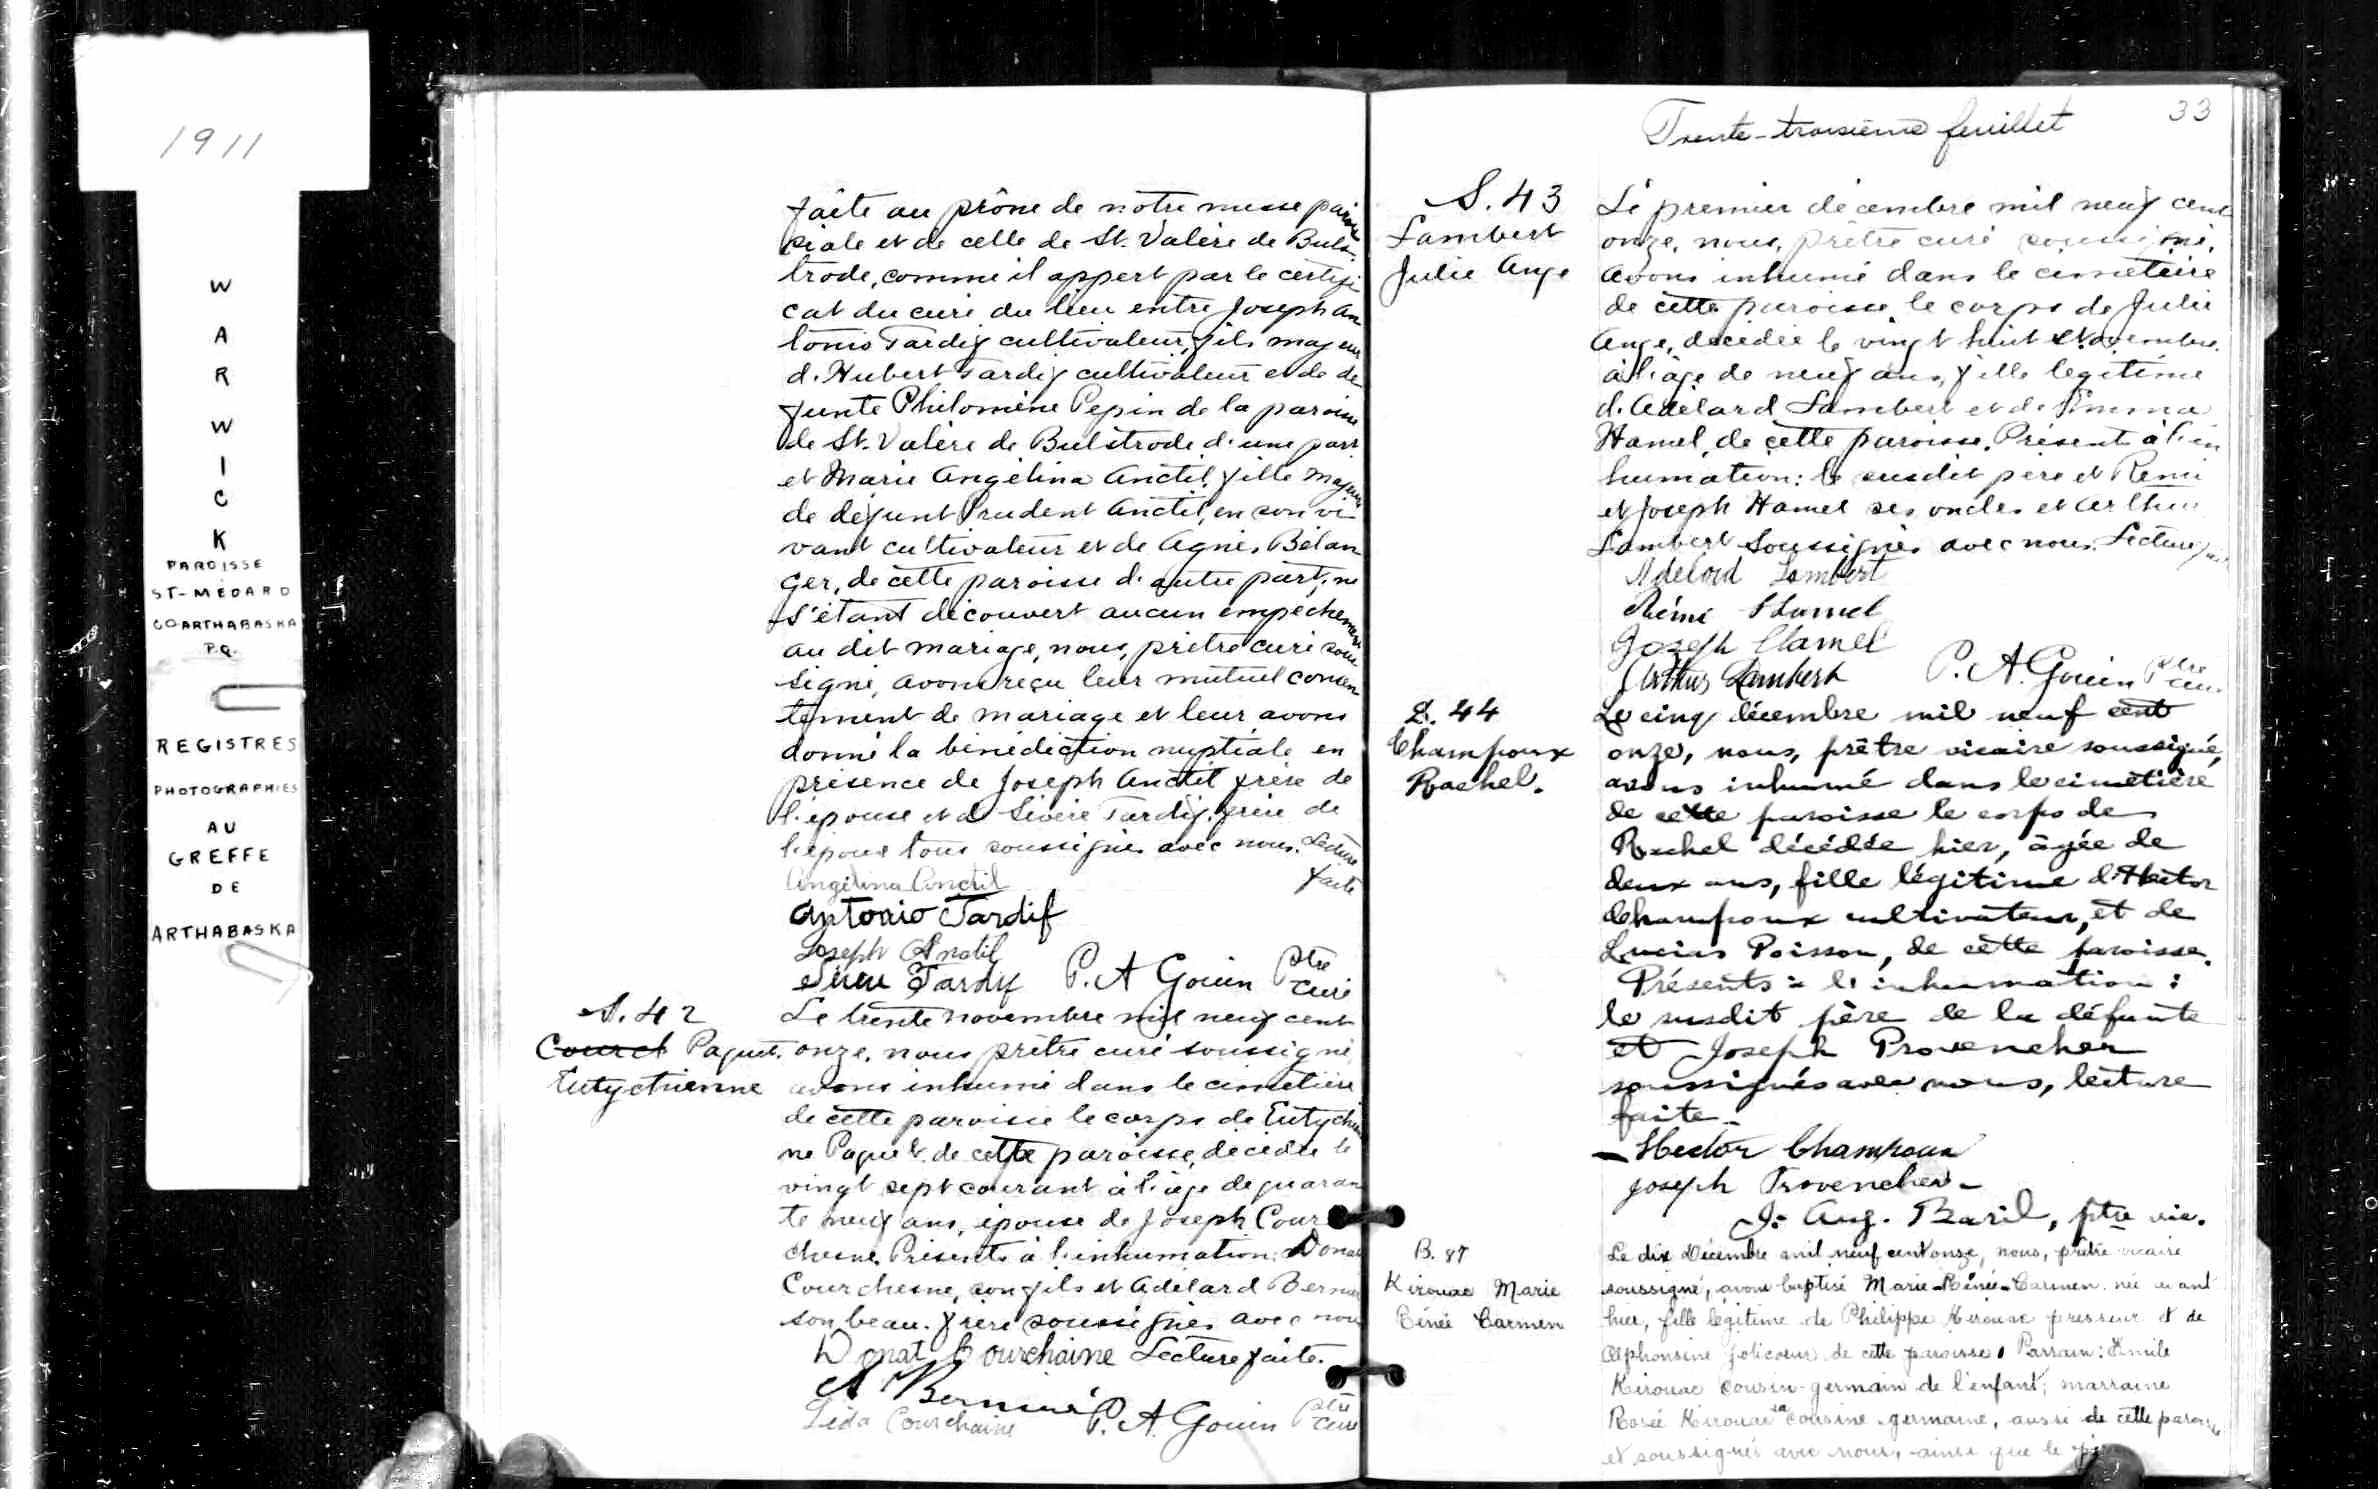 1911
WARWICK
PAROISSE
ST-MÉDARD
CO ARTHABASKA
P.Q.
REGISTRES
PHOTOGRAPHIES
AU
GREFFE
DE
ARTHABASKA
faite au prône de notre messe parois
siale et de celle de St. Valère de Buls-
trode, comme il appert par le certifi
cat du curé du lieu entre Joseph An
tonio Tardif cultivateur, fils majeur
d'Hubert Tardif cultivateur et de dé
funte Philomène Pepin de la paroisse
de St. Valère de Bulstrode d'une part
et Marie Angélina Anctil, fille majeure
de défunt Prudent Anctil, en son vi
vant cultivateur et de Agnès Bélan
ger, de cette paroisse d'autre part; ne
s'étant découvert aucun empêchement
au dit mariage, nous, prêtre curé sous
signé, avons reçu leur mutuel consen
tement de mariage et leur avons
donné la bénédiction nuptiale en
présence de Joseph Anctil frère de
l'épouse et de Sévère Tardif, frère de
l'époux tous soussignés avec nous. Lecture
faite
Angélina Anctil
Antonio Tardif
Joseph Anctil
Tardif P. A Gouin Ptre
Curé
S. 42
Courch Paquet.
Eutychienne
Le trente novembre mil neuf cent
onze, nous prêtre curé soussigné,
avons inhumé dans le cimetière
de cette paroisse le corps de Eutychien
ne Paquet de cette paroisse, décédée le
vingt sept courant à l'âge de quaran
te neuf ans, épouse de Joseph Cour
chesne. Présents à l'inhumation: Donat
Courchesne, son fils et Adélard Bernier
son beau-frère soussignés avec nous
Donat Courchaine Lecture faite.
A Bernier
Léda Courchaine P. A. Gouin Ptre
Curé
33
Trente-troisième feuillet
S. 43
Lambert
Julie Ange
Le premier décembre mil neuf cent
onze, nous, prêtre curé soussigné,
avons inhumé dans le cimetière
de cette paroisse le corps de Julie
Ange, décédée le vingt huit novembre,
à l'âge de neuf ans, fille légitime
d'Adélard Lambert et de Emma
Hamel, de cette paroisse. Présents à l'in
humation: le susdit père et Rémi
et Joseph Hamel ses oncles et Arthur
Lambert soussignés avec nous. Lecture faite
Adelard Lambert
Rémi Hamel
Joseph Hamel
Arthur Lambert P. A. Gouin Ptre
Curé
S. 44
Champoux
Rachel.
Le cinq décembre mil neuf cent
onze, nous, prêtre vicaire soussigné,
avons inhumé dans le cimetière
de cette paroisse le corps de
Rachel décédée hier, âgée de
deux ans, fille légitime d'Hector
Champoux cultivateur, et de
Lucias Poisson, de cette paroisse.
Présents à l'inhumation:
le susdit père de la défunte
et Joseph Provencher
soussignés avec nous, lecture
faite.
Hector Champoux
Joseph Provencher
J. Aug. Baril, ptre vic.
B. 87
Kirouac Marie
Rénée Carmen
Le dix Décembre mil neuf cent onze, nous, prêtre vicaire
soussigné, avons baptisé Marie-Rénée-Carmen née avant
hier, fille légitime de Philippe Kirouac presseur et de
Alphonsine Jolicoeur de cette paroisse. Parrain: Émile
Kirouac cousin-germain de l'enfant; marraine
Rosée Kirouac sa cousine germaine, aussi de cette paroisse
et soussignés avec nous, ainsi que le